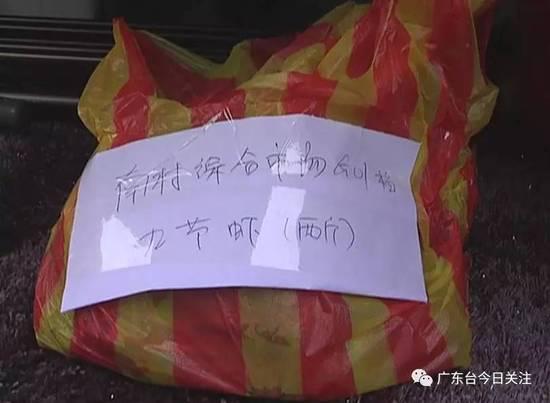 南村综合市场G41档
九节虾(两斤)
广东台今日关注